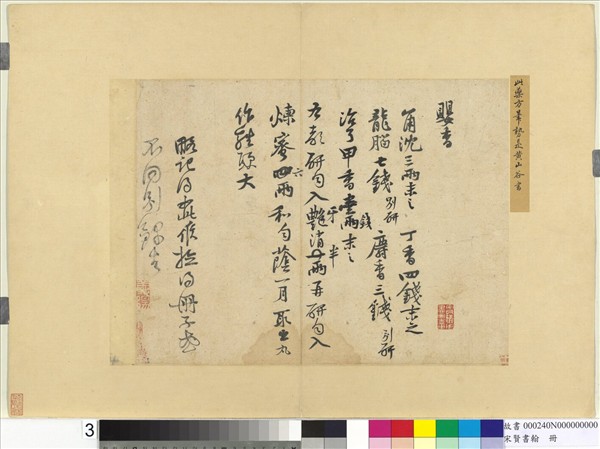 此藥方筆勢是黃山谷書
嬰香
角沈三兩末之 丁香四錢末之
龍腦七錢別研 麝香三錢別研
治了甲香壹錢末之
右都研勻入牙消半兩再研勻入
煉蜜六兩和勻蔭一月取出丸
作雞頭大
略記得如此候檢得冊子或
不同別錄去
3
故書 000240N000000000
宋賢書翰 冊